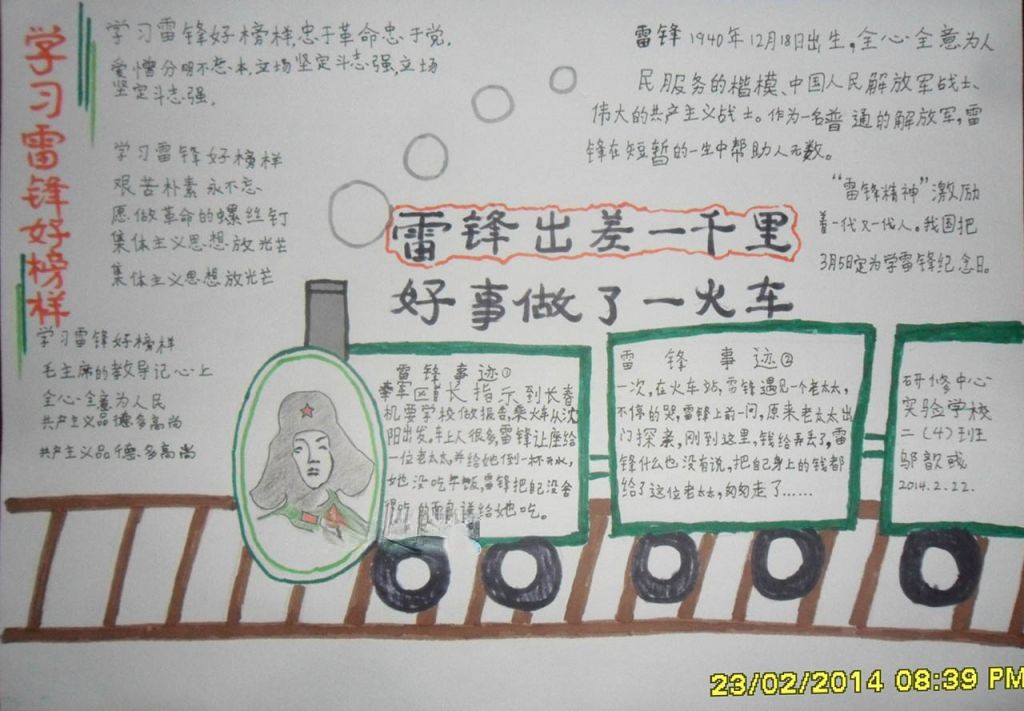 学习雷锋好榜样
学习雷锋好榜样,忠于革命忠于党.
爱憎分明不忘本,立场坚定斗志强,立场
坚定斗志强.
学习雷锋好榜样
艰苦朴素永不忘
愿做革命的螺丝钉
集体主义思想放光芒
集体主义思想放光芒
学习雷锋好榜样
毛主席的教导记心上
全心全意为人民
共产主义品德多高尚
共产主义品德多高尚
雷锋1940年12月18日出生,全心全意为人
民服务的楷模、中国人民解放军战士、
伟大的共产主义战士。作为一名普通的解放军,雷
锋在短暂的一生中帮助人无数。
“雷锋精神”激励
着一代又一代人。我国把
3月5日定为学雷锋纪念日。
雷锋出差一千里
好事做了一火车
雷锋事迹①
军区首长指示到长春
机要学校做报告,乘火车从沈
阳出发,车上人很多,雷锋让座给
一位老太太,并给她倒一杯开水,
她没吃午饭,雷锋把自己没舍
得吃的面包送给她吃。
雷锋事迹②
一次,在火车站,雷锋遇见一个老太太,
不停的哭,雷锋上前一问,原来老太太出
门探亲,刚到这里,钱给弄丢了,雷
锋什么也没有说,把自己身上的钱都
给了这位老太太,匆匆走了……
研修中心
实验学校
二(4)班
邬歆彧
2014.2.22.
23/02/2014 08:39 PM